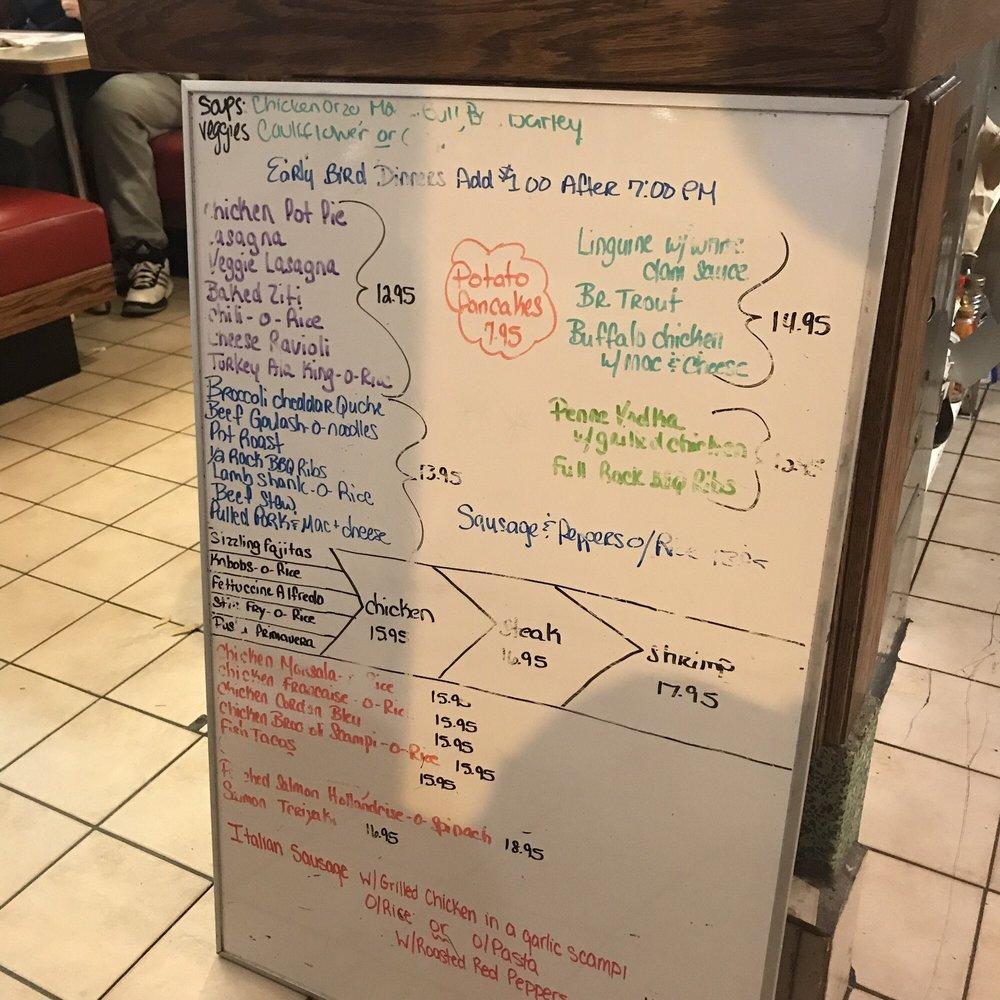 Soups: Chicken Orzo
Veggies Cauliflower or
Early Bird Dinners Add $1.00 After 7:00 PM
Chicken Pot Pie
Lasagna
Veggie Lasagna
Baked Ziti
Chili-o-Rice
Cheese Ravioli
Turkey Ala King-o-Rice
12.95
Broccoli cheddar Quiche
Beef Goulash-o-noodles
Pot Roast
1/2 Rack BBQ Ribs
Lamb Shank-o-Rice
Beef Stew
Pulled Pork & Mac + cheese
13.95
Potato
Pancakes
7.95
Linguine w/white
clam sauce
Br Trout
Buffalo chicken
w/ Mac & Cheese
14.95
Penne Vodka
w/grilled chicken
Full Rack BBQ Ribs
Sausage & Peppers o/Rice 13.95
Sizzling Fajitas
Kabobs-o-Rice
Fettuccine Alfredo
Stir Fry-o-Rice
Primavera
chicken
15.95
Steak
16.95
Shrimp
17.95
Chicken Marsala Rice 15.95
Chicken Francaise-o-Rice 15.95
Chicken Cordon Bleu 15.95
Chicken Broccoli Scampi-o-Rice 15.95
Fish Tacos 15.95
Poached Salmon Hollandaise-o-Spinach 18.95
Salmon Teriyaki 16.95
Italian Sausage w/Grilled Chicken in a garlic scampi
O/Rice or O/Pasta
W/Roasted Red Peppers